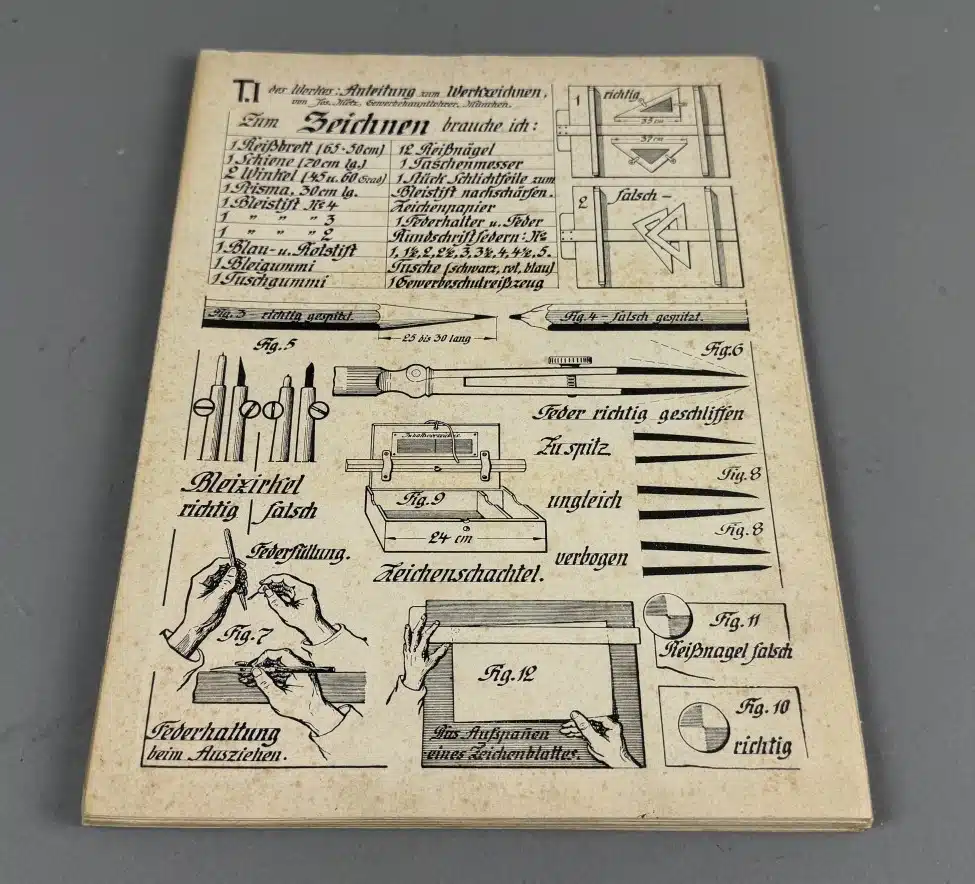 T.I des Werkes: Anleitung zum Werkzeichnen,
von Jos. Metz, Gewerbehauptlehrer, München.
Zum Zeichnen brauche ich:
1 Reißbrett (65·50cm)
1 Schiene (70cm lg.)
2 Winkel (45 u. 60 Grad)
1 Prisma, 30cm lg.
1 Bleistift № 4
1 " " " 3
1 " " " 2
1 Blau- u. Rotstift
1 Bleigummi
1 Tuschgummi
12 Reißnägel
1 Taschenmesser
1 Stück Schlichtfeile zum
Bleistift nachschärfen.
Zeichenpapier
1 Federhalter u. Feder
Rundschriftfedern: №
1, 1½, 2, 2½, 3, 3½, 4, 4½, 5.
Tusche (schwarz, rot, blau)
1 Gewerbeschulreißzeug
1 richtig
35 cm
37 cm
2 falsch -
Fig. 3 - richtig gespitzt.
25 bis 30 lang
Fig. 4 - falsch gespitzt.
Fig. 5
Bleizirkel
richtig falsch
Fig. 6
Feder richtig geschliffen
Zu spitz
Fig. 8
ungleich
Fig. 8
verbogen
Inhaltsverzeichnis
Fig. 9
24 cm
Zeichenschachtel.
Federfüllung.
Fig. 7
Federhaltung
beim Ausziehen.
Fig. 12
Das Aufspañen
eines Zeichenblattes.
Fig. 11
Reißnagel falsch
Fig. 10
richtig